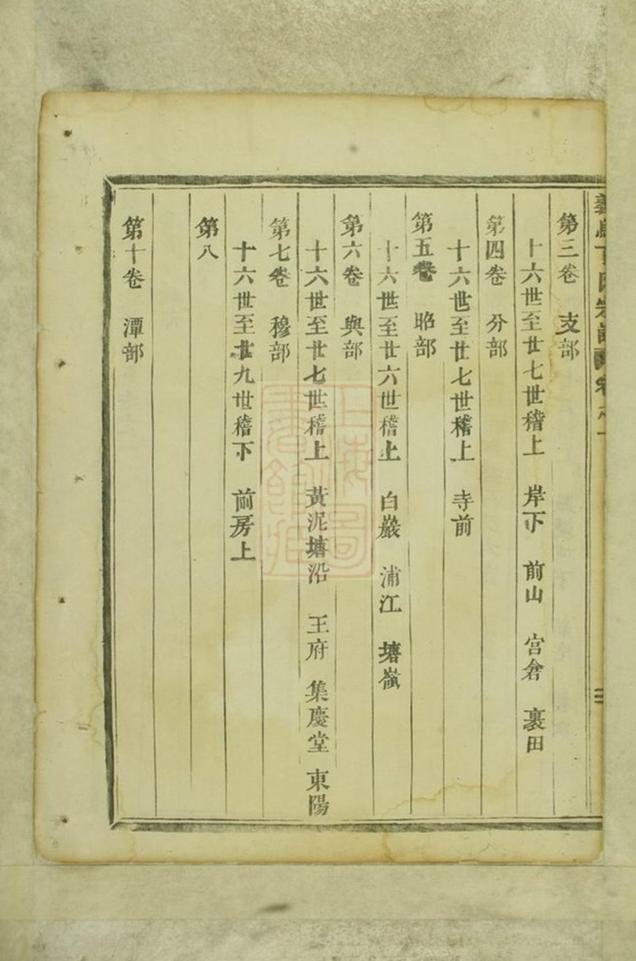 第三卷 支部
十六世至廿七世稽上 岸下 前山 宫倉 裏田
第四卷 分部
十六世至廿七世稽上 寺前
第五卷 昭部
十六世至廿六世稽上 白巖 浦江 塘嶺
第六卷 與部
十六世至廿七世稽上 黃泥塘沿 王府 集慶堂 東陽
第七卷 穆部
十六世至廿九世稽下 前房上
第八
第十卷 潭部